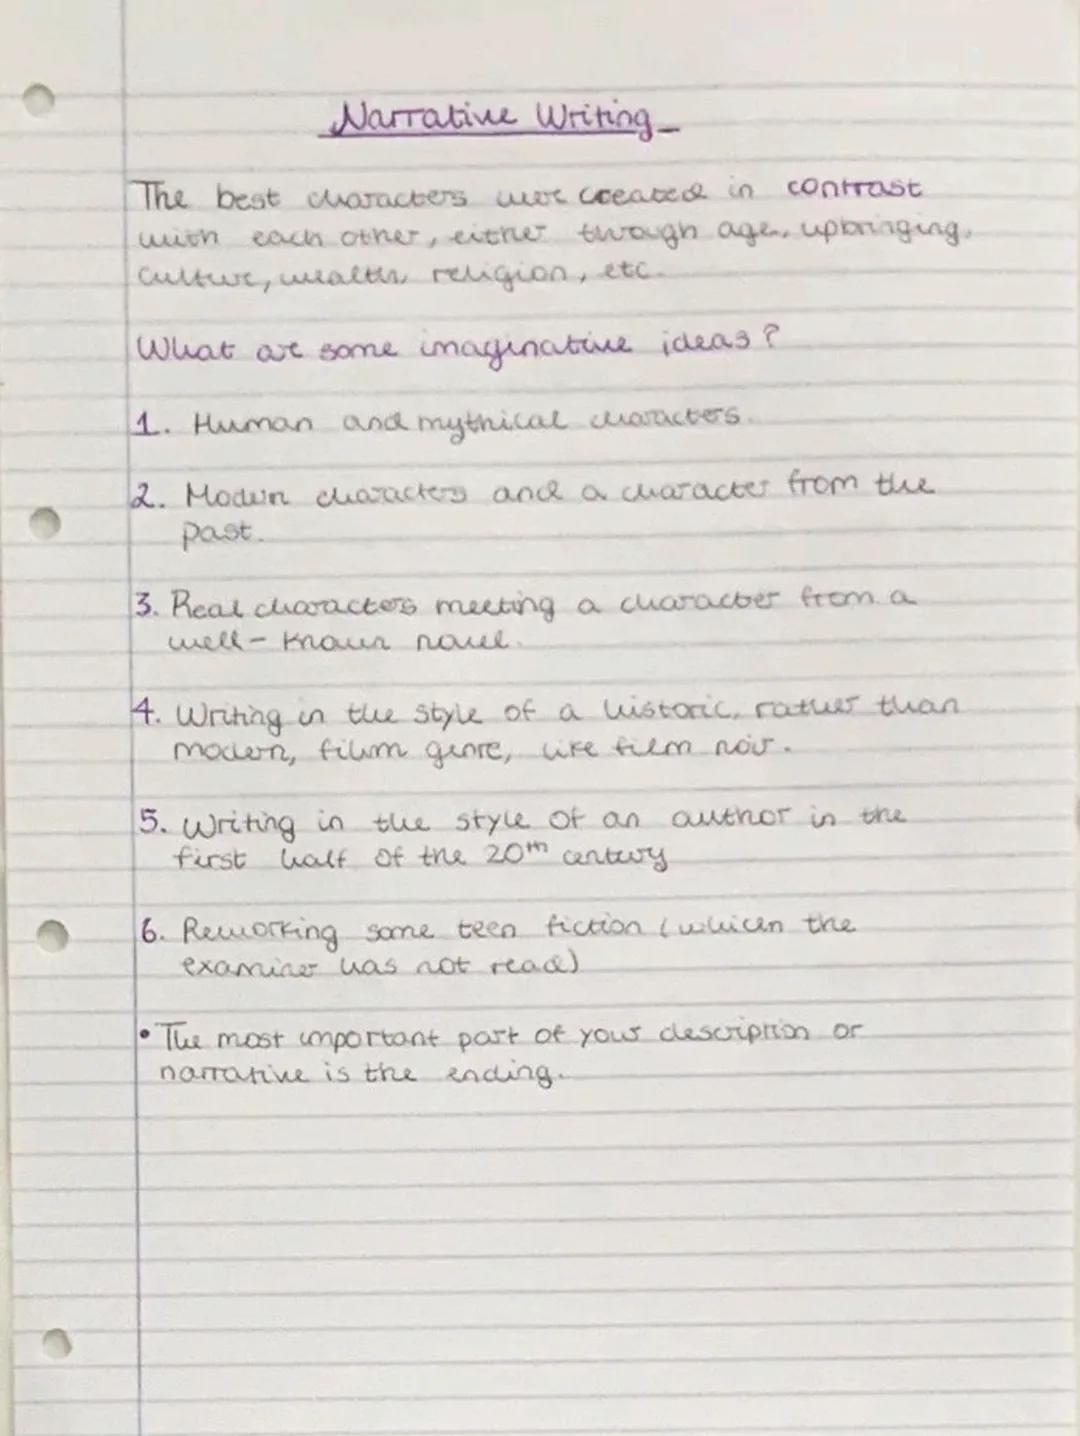 Narrative Writing
The best characters are created in contrast
with each other, either through age, upbringing,
culture, wealth, religion, etc.
What are some imaginative ideas?
1. Human and mythical characters.
2. Modern characters and a character from the
past.
3. Real characters meeting a character from a
well-known novel.
4. Writing in the style of a historic, rather than
modern, film genre, like film noir.
5. Writing in the style of an author in the
first half of the 20th century
6. Reworking some teen fiction (which the
examiner has not read)
• The most important part of your description or
narrative is the ending.